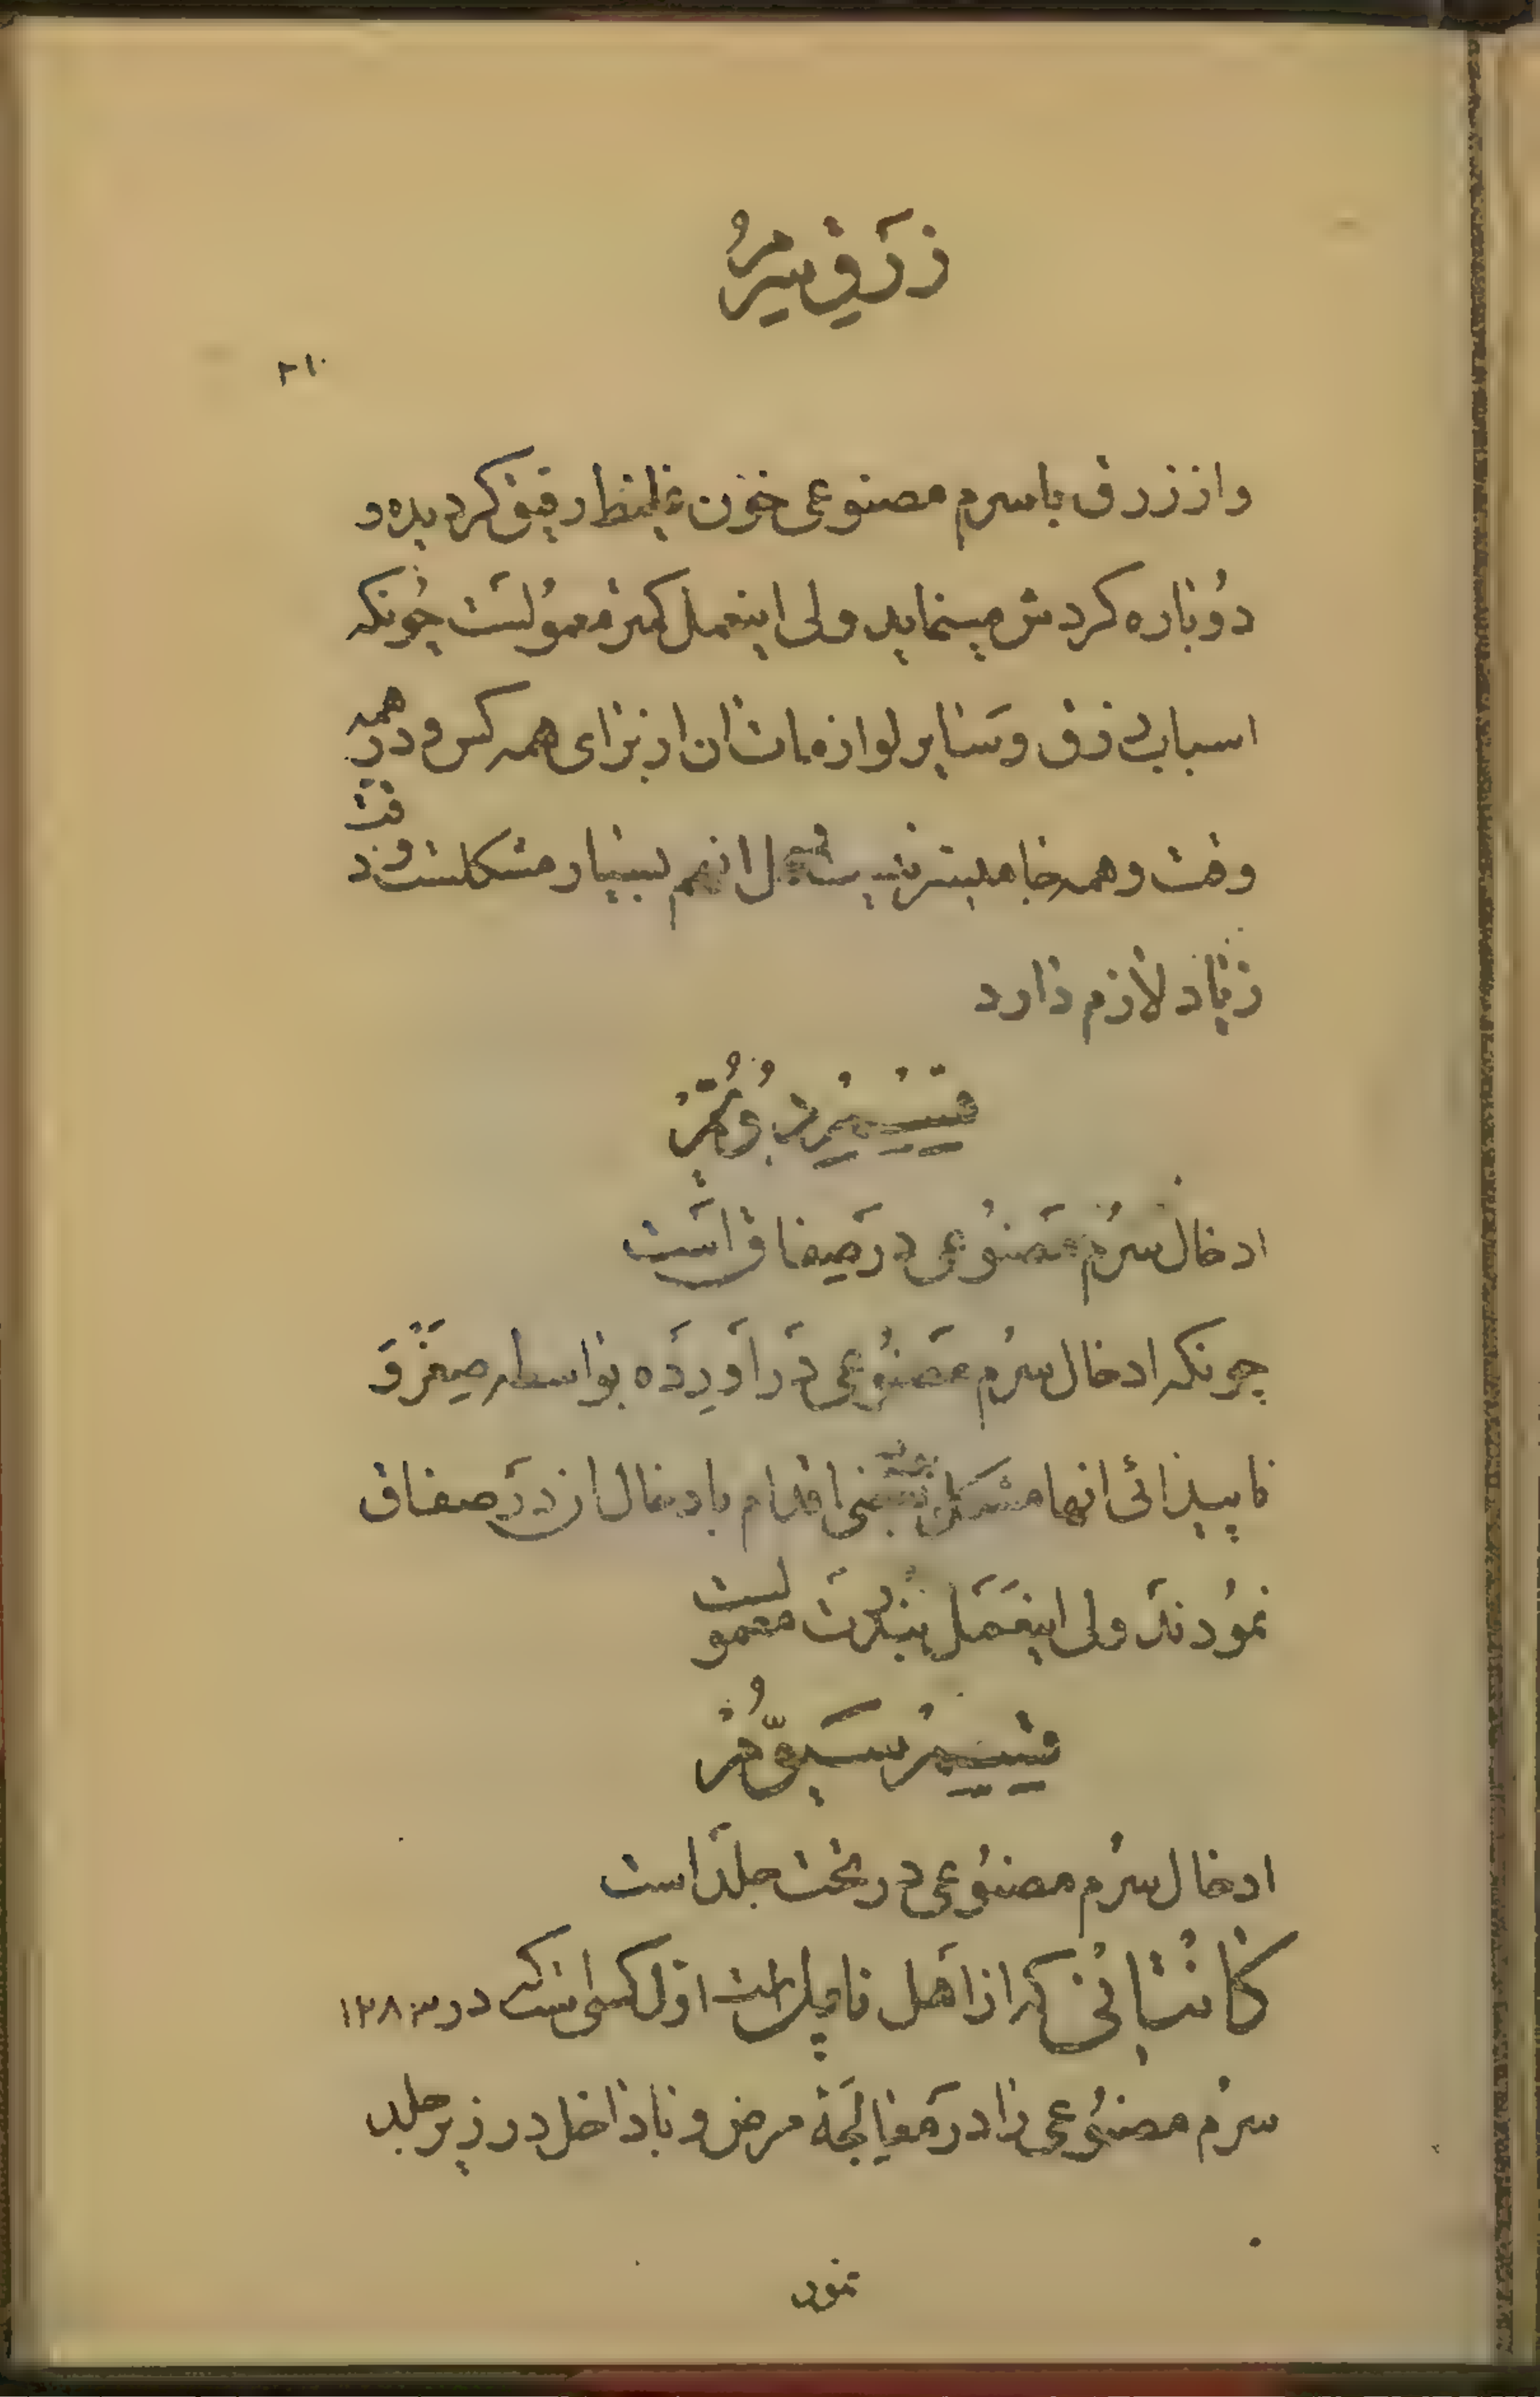 زرق سرم
۲۱۰
و از زرق با سرم مصنوعی خون غلیظ رقیق کردیده و
دوباره کردش مینماید ولی اینعمل کمتر معمولست چونکه
اسباب زرق و سایر لوازمات ان از برای همه کس و در همه
وقت و همه جا میسر نیست عمل انهم بسیار مشکلست و دقت
زیاد لازم دارد
قسم دوم
ادخال سرم مصنوعی در صفاق است
چونکه ادخال سرم مصنوعی در اورده بواسطه صغر و
ناپیدائی انها مشکل بعضی اقدام بادخال ان در صفاق
نمودند ولی اینعمل بندرت معمولست
قسم سیوم
ادخال سرم مصنوعی در تحت جلد است
کانتانی که از اهل ناپل است اول کسی است که در ۱۲۸۳
سرم مصنوعی را در معالجه مرض وبا داخل در زیر جلد
نمود